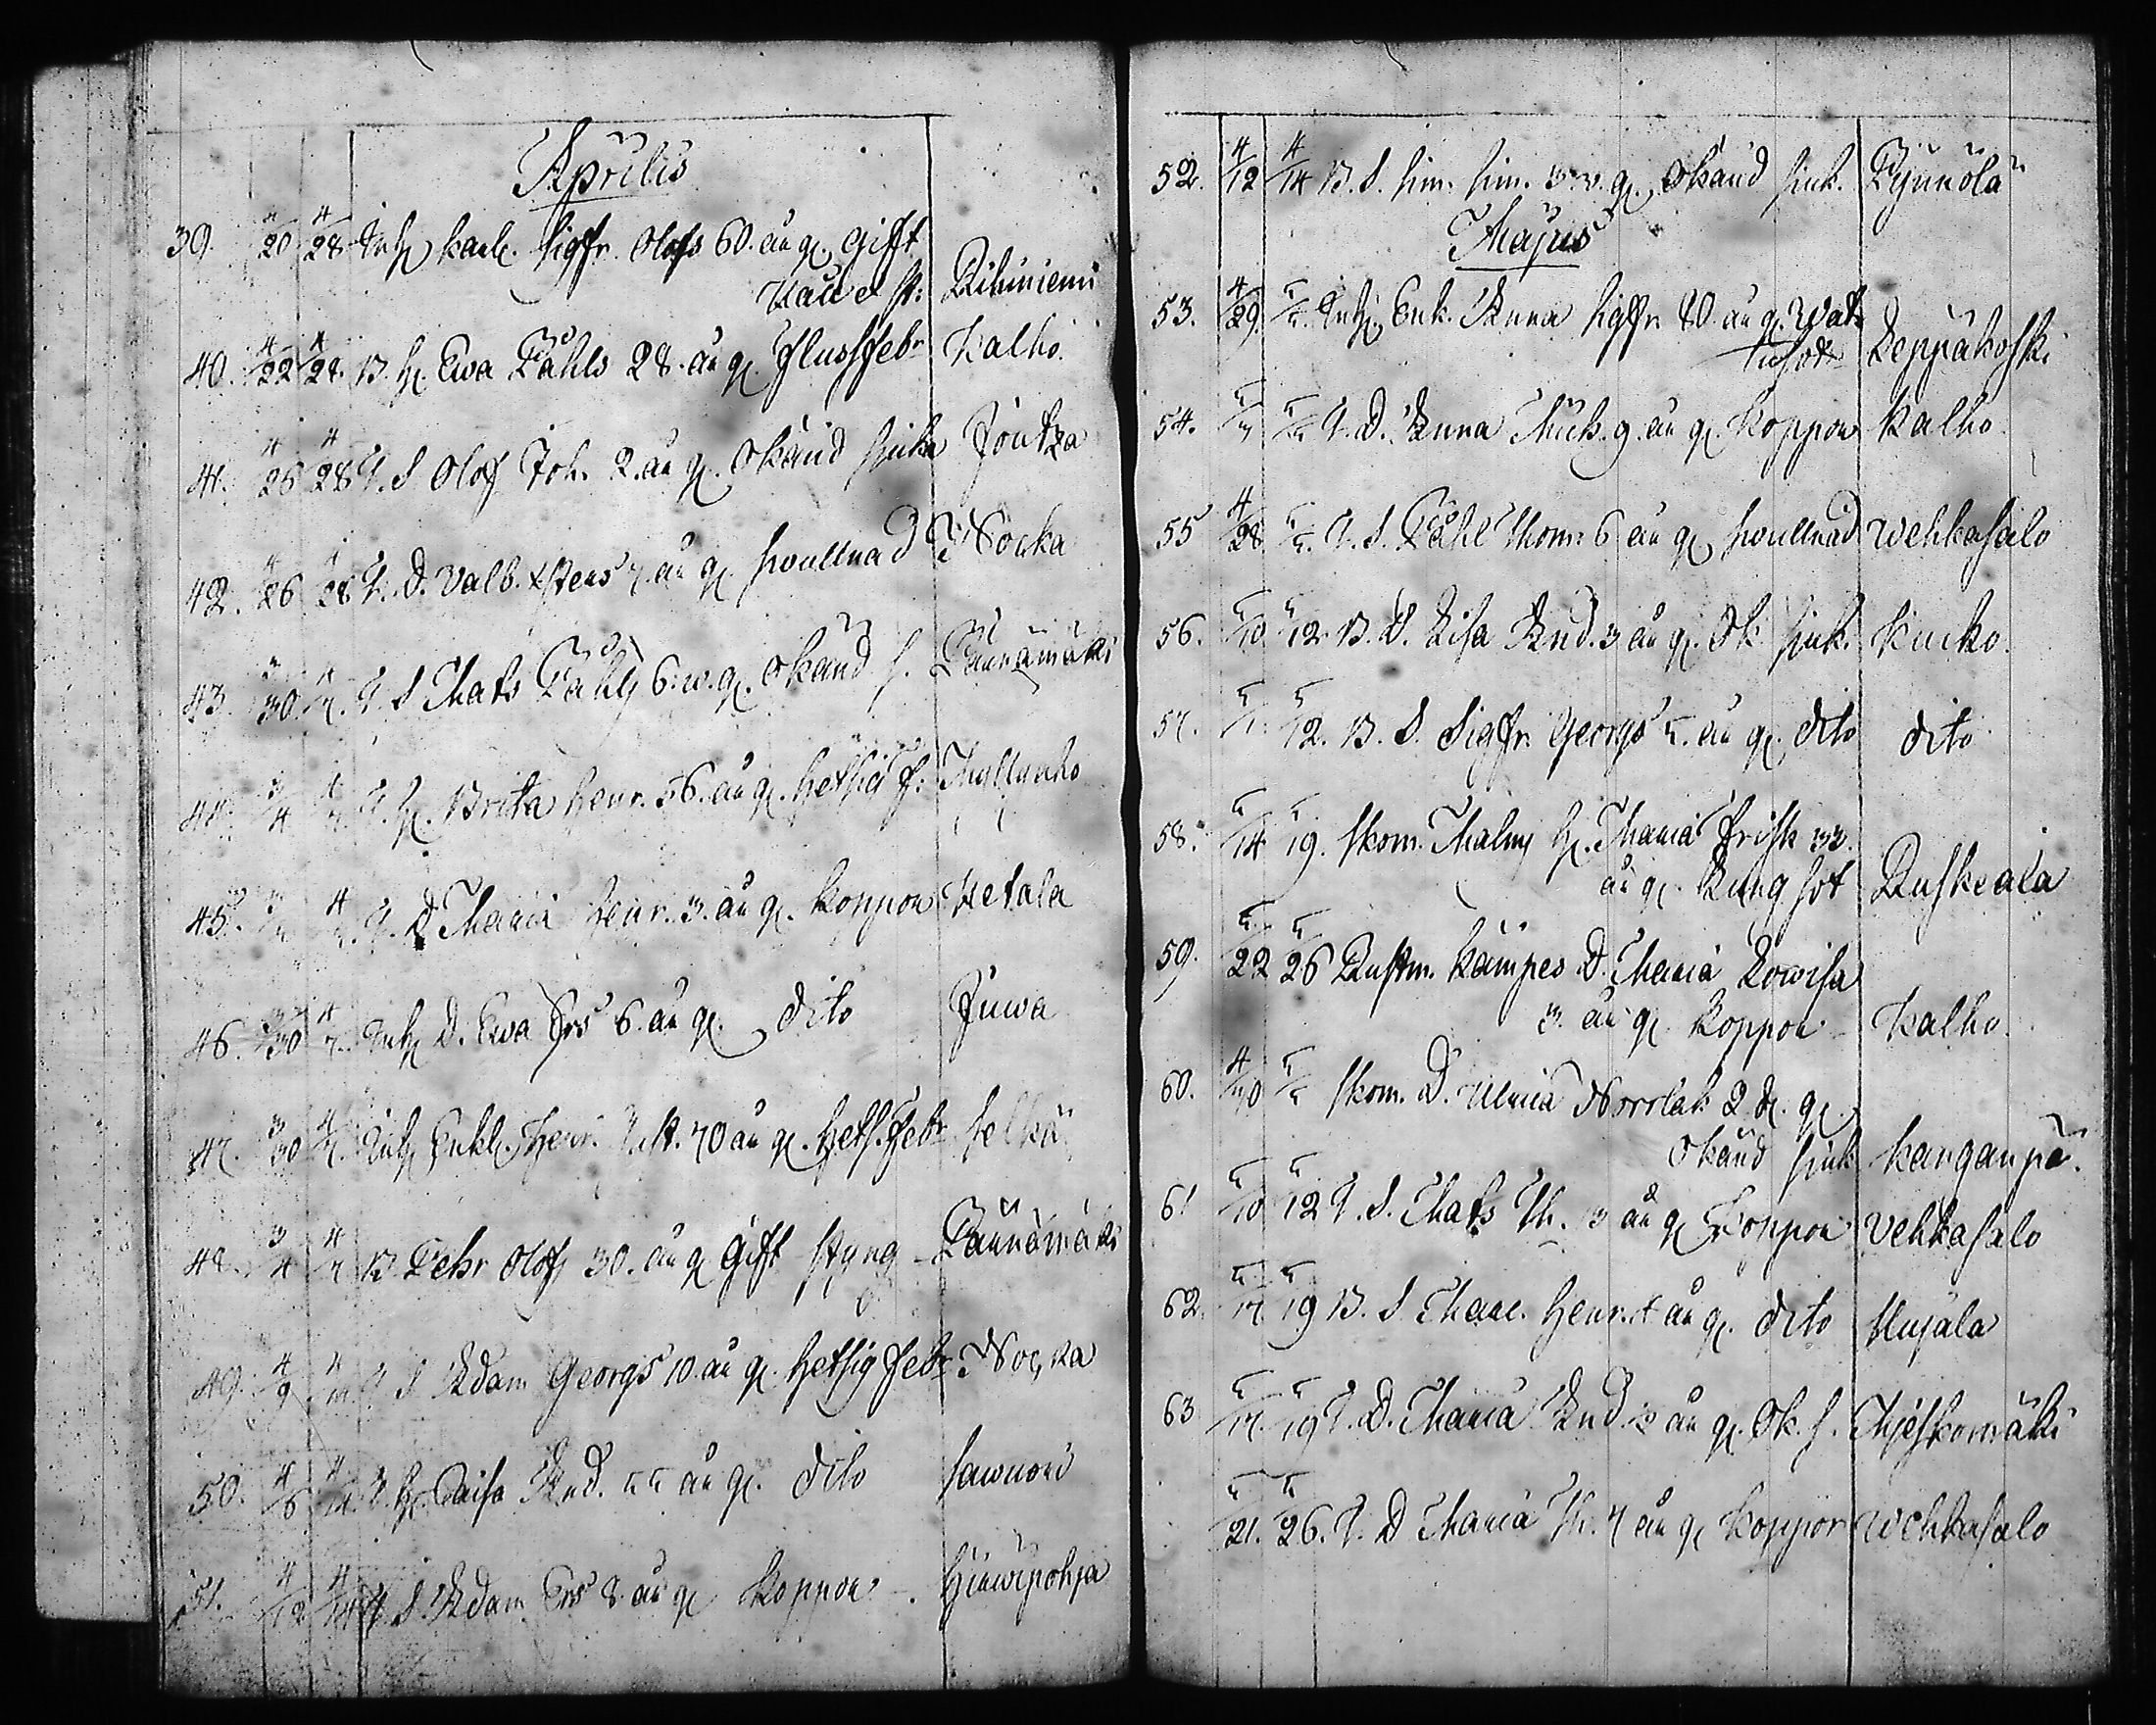 Aprilis
39. 4/20 4/28 Inh. karl. Sigfr. Olofs 60. åri. g. Gifft
st: Rihiniemi
40. 4/22 4/28. B. H. Ewa Påhls 28. år g. Flussfebr Kalho.
41. 4/25 4/28 T. S Olof Joh. 2. år g. Okänd siuka Joutza
42. 4/26 4/28 T. D. Valb. Xstens 7. år g. svullnad Nocka
43. 3/30. 4/7. T. S Mats Påhls 6. w. g. Okänd s. Pännämäki
44. 3/4 4/7. T. H. Brita Henr. 56. år g. hetsig f: Myllynho
45. 4/7. T. D Maria Henr. 3. år g. Koppor Hetala
46. 3/30 4/7. Inh. D. Ewa Ers 6. år g. Dito Juwa
47. 3/30 4/7. Inh. Enkl. Henr. 70 år g. hets. febr Selkä
48. 3/4 4/7 B. Pehr Olofs 30. år g. Gift styng Pännämäki
49. 4/9 4/14 T. S Adam Georgs 10. år g. hetsig febr Nocka
50. 4/6 4/14. T. H. Caisa And. 55 år g. Dito Sawnori
51. 4/12 4/14 T. S. Adam Ers 8. år g. Koppor. Hinwipohja
52. 4/12 4/14 B. S. Sim. Sim. 3. w. g. Okänd siuk. Rynnölä
Majus
53. 4/29 5/5. Inh. Enk. Anna Sigfr. 80. år g. Wat-
tusot Leppäkoski
54. 5/3 5/5 T. D. Anna Mich. 9. år g. Koppor Kalho.
55 4/28 5/5. T. S. Påhl Thom. 6 år g. svullnad Wehkasalo
56. 5/10 5/12. B. D. Lisa And. 3 år g. Ok. siuk. Kucko.
57. 5/1. 5/12. B. S. Sigfr. Georgs 5. år g. Dito dito
58. 5/14 5/19. Skom. Malms H. Maria Frisk 33.
år g. Lungsot Ruskeala
59. 5/22 5/26 Rustm. Kämpes D. Maria Lowisa
3. år g. Koppor Kalho.
60. 4/30 5/5 Skom. D. Ulrica Norrlak 2. d. g.
Okänd siuk Kanganpä.
61 5/10 5/12 T. S. Mats Th. 3 år g. Koppor Vehkasalo
62. 5/17 5/19 B. S Henr. 4 år g. Dito Mujala
63 5/17. 5/19 T. D. Maria And. 3 år g. Ok. s. Mjeskomäki
5/21. 5/26. T. D Maria Th. 7 år g. Koppor Wehkasalo